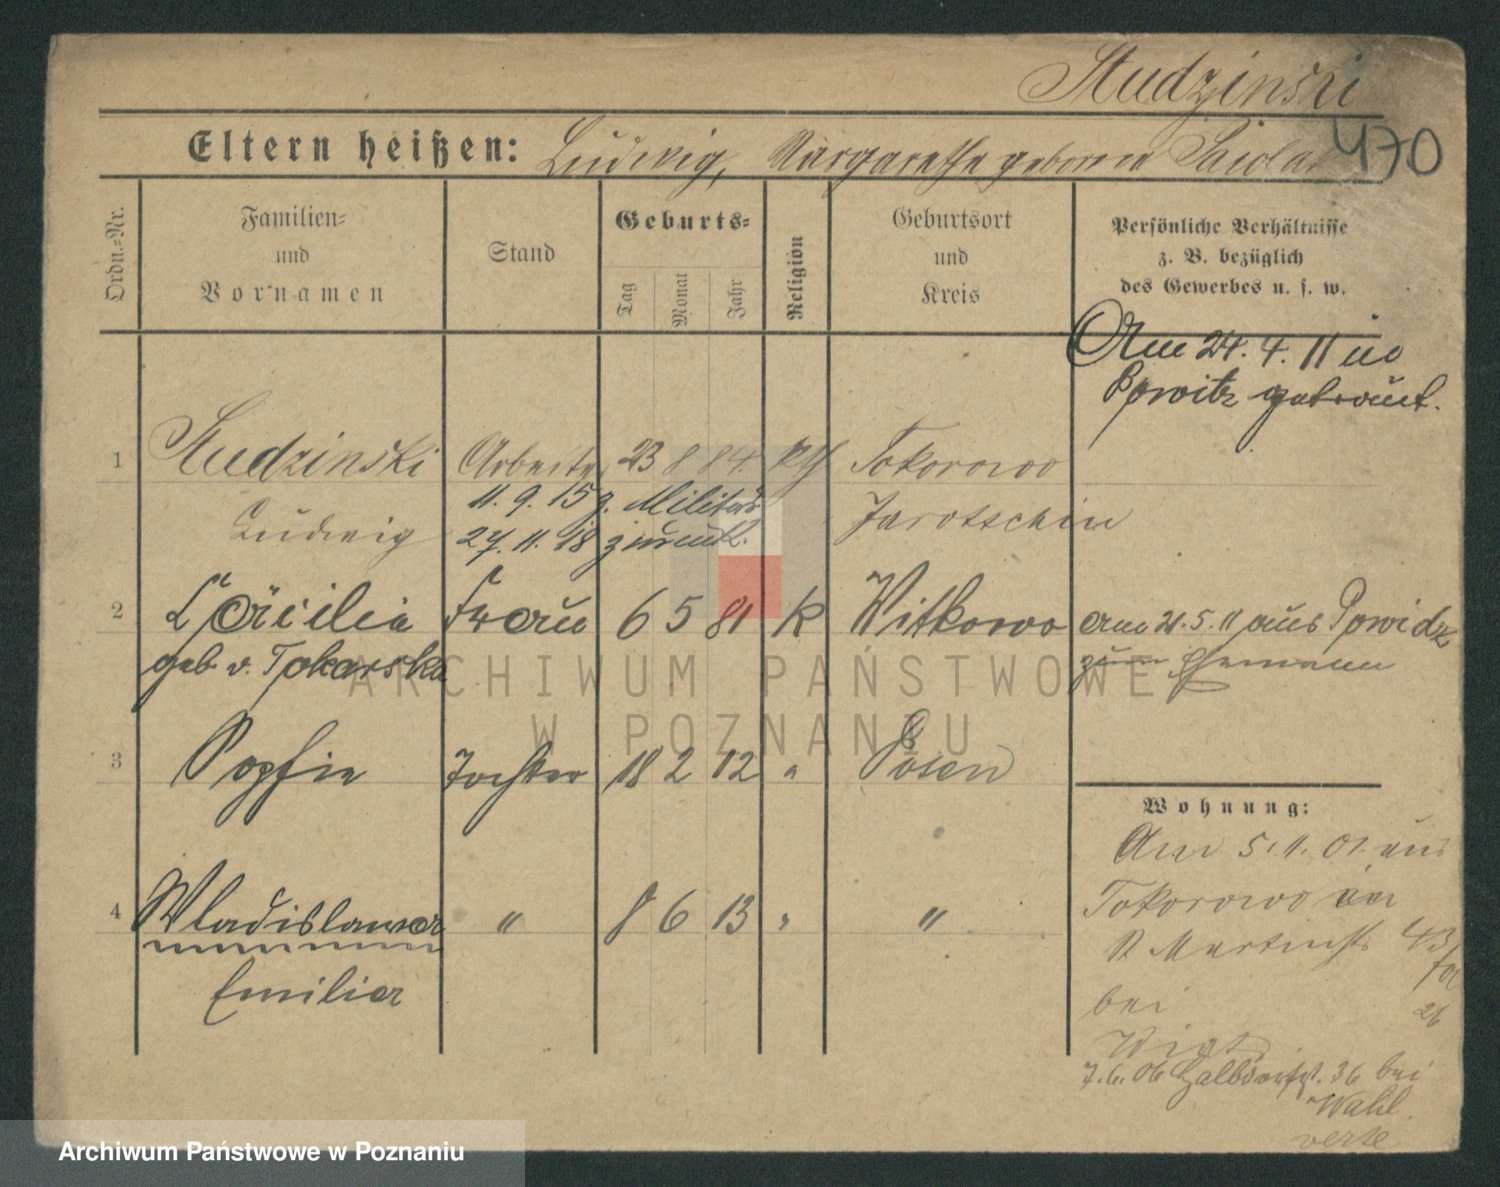 Studzinski
470
Eltern heißen: Ludwig, Margarethe geborene
Ordn.=Nr.
Familien=
und
Vornamen
Stand
Geburts=
Tag
Monat
Jahr
Religion
Geburtsort
und
Kreis
Persönliche Verhältnisse
z. B. bezüglich
des Gewerbes u. s. w.
Am 24. 4. 11 in
Powitz getraut.
1 Studzinski Arbeiter 23 8 84 kth Tokorowo
11. 9. 15 z. Militär
Ludwig Jarotschin
27. 11. 18 zurück.
2 Cäcilia Frau 6 5 81 k Witkowo Am 21. 5. 11 aus Powidz
geb v. Tokarska zum Ehemann
ARCHIWUM PAŃSTWOWE
W POZNANIU
3 Sophie Tochter 18 2 12 " Posen
Wohnung:
Am 5. 1. 01 aus
4 Wladislawa " 8 6 13 " "
Tokorowo in
St Martinstr 43
Emilia
bei
26
7. 6. 06 Halbdorfst. 36 bei
Wahl.
verte
Archiwum Państwowe w Poznaniu